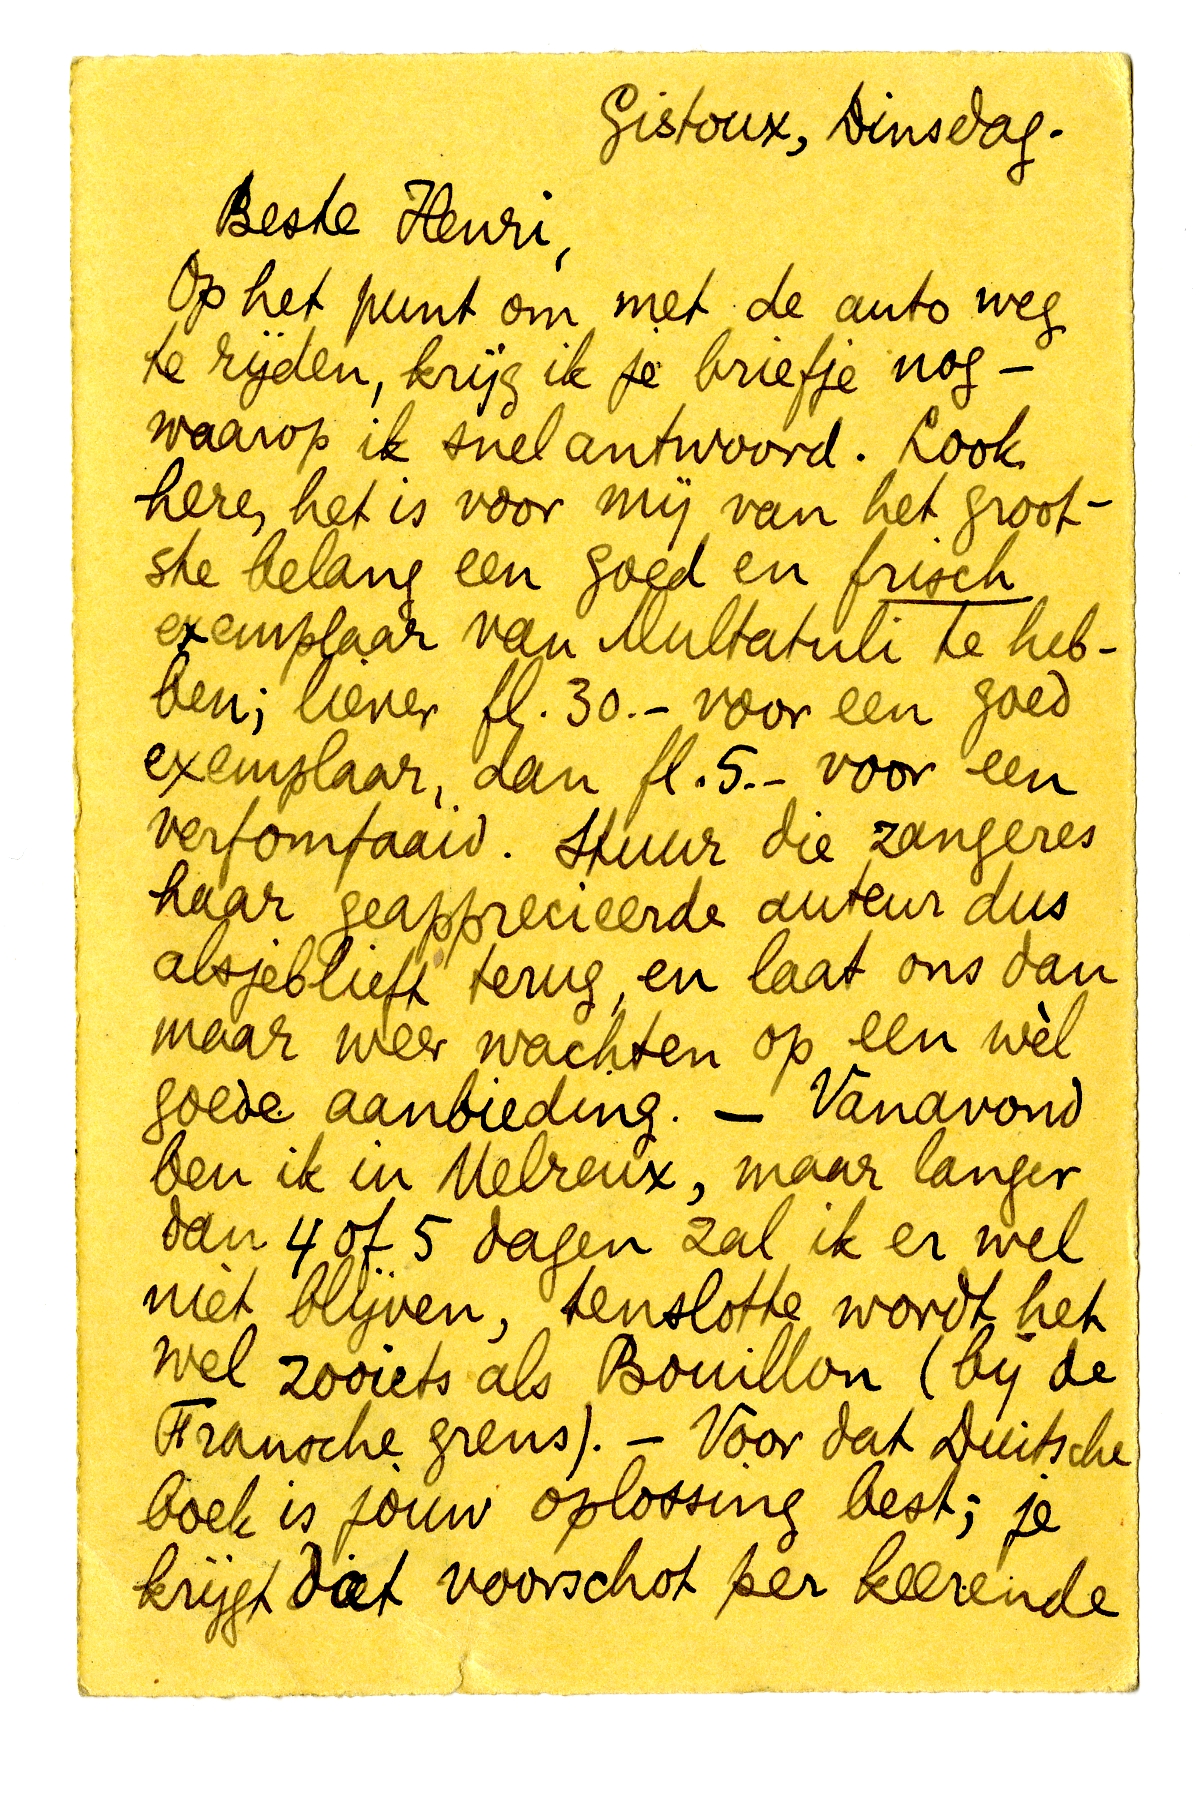 Gistoux, Dinsdag.
Beste Henri,
Op het punt om met de auto weg
te rijden, krijg ik je briefje nog –
waarop ik snel antwoord. Look
here, het is voor mij van het groot-
ste belang een goed en frisch
exemplaar van Multatuli te heb-
ben; liever fl. 30.– voor een goed
exemplaar, dan fl. 5.– voor een
verfomfaaid. Stuur die zangeres
haar geapprecieerde auteur dus
alsjeblieft terug, en laat ons dan
maar weer wachten op een wèl
goede aanbieding. – Vanavond
ben ik in Melreux, maar langer
dan 4 of 5 dagen zal ik er wel
niet blijven, tenslotte wordt het
wel zooiets als Bouillon (bij de
Fransche grens). – Voor dat Duitsche
boek is jouw oplossing best; je
krijgt dat voorschot per keerende